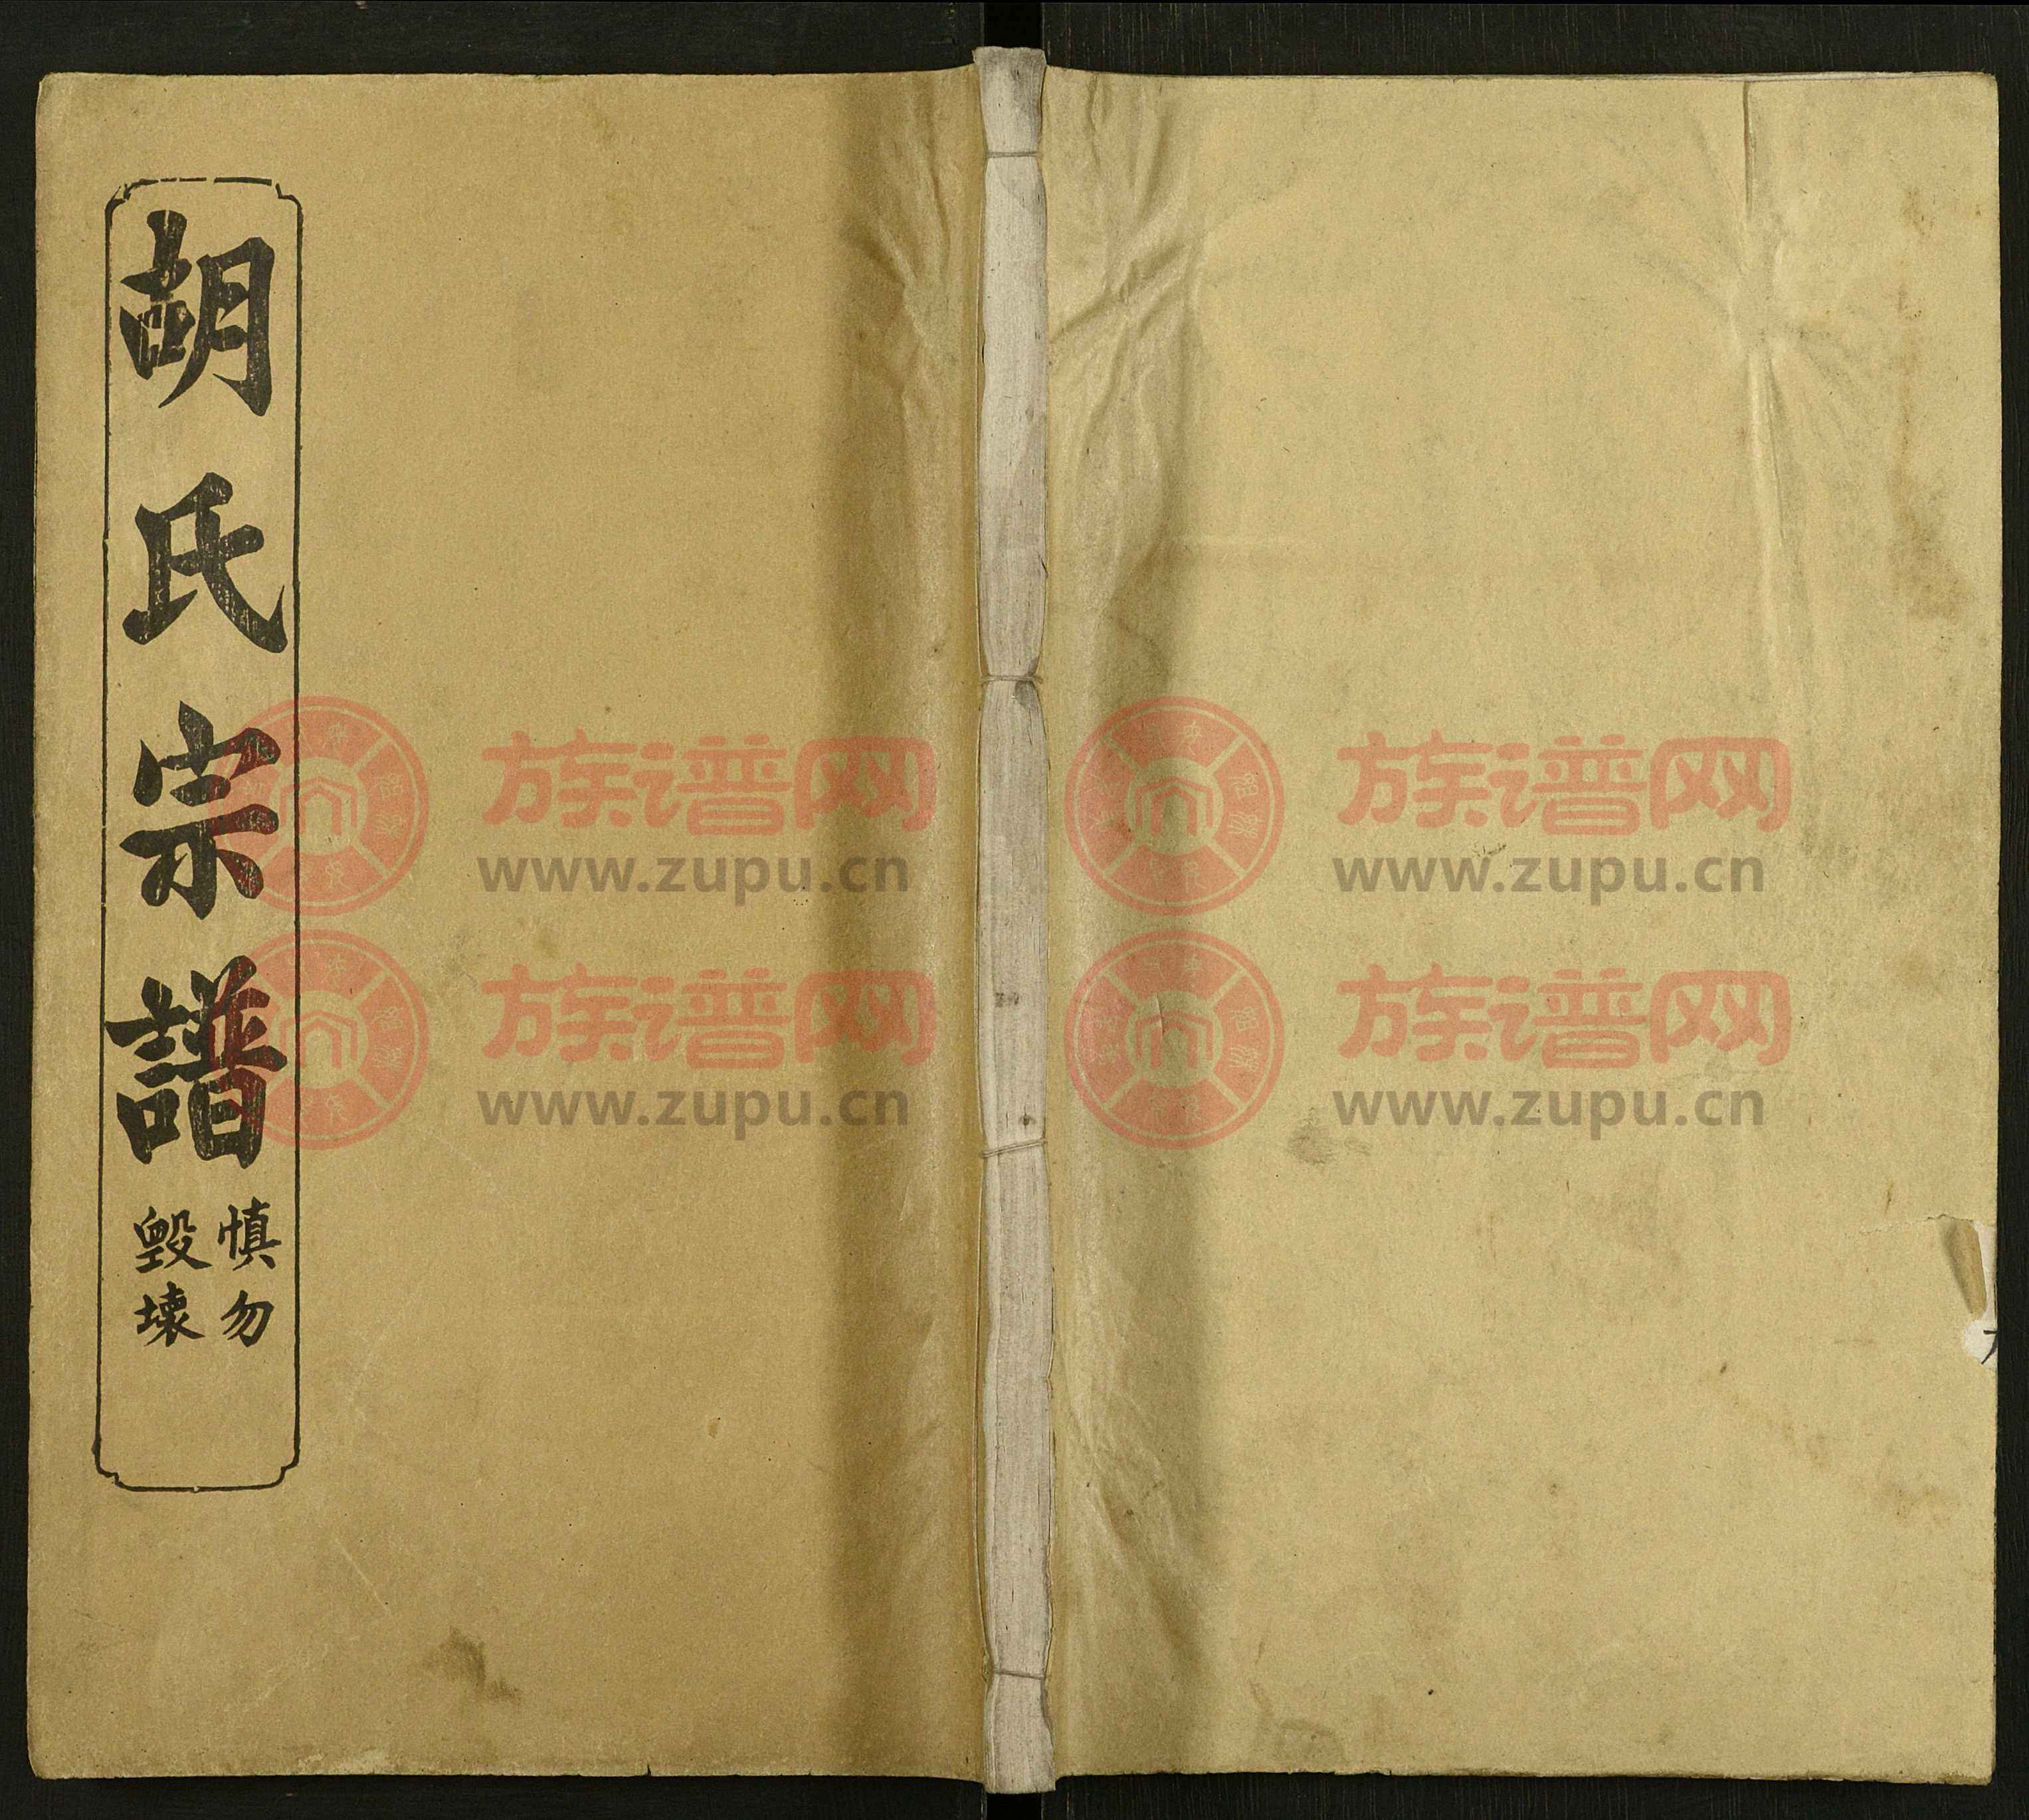 胡氏宗譜
慎勿
毀壞
族谱网
www.zupu.cn
族谱网
www.zupu.cn
族谱网
www.zupu.cn
族谱网
www.zupu.cn